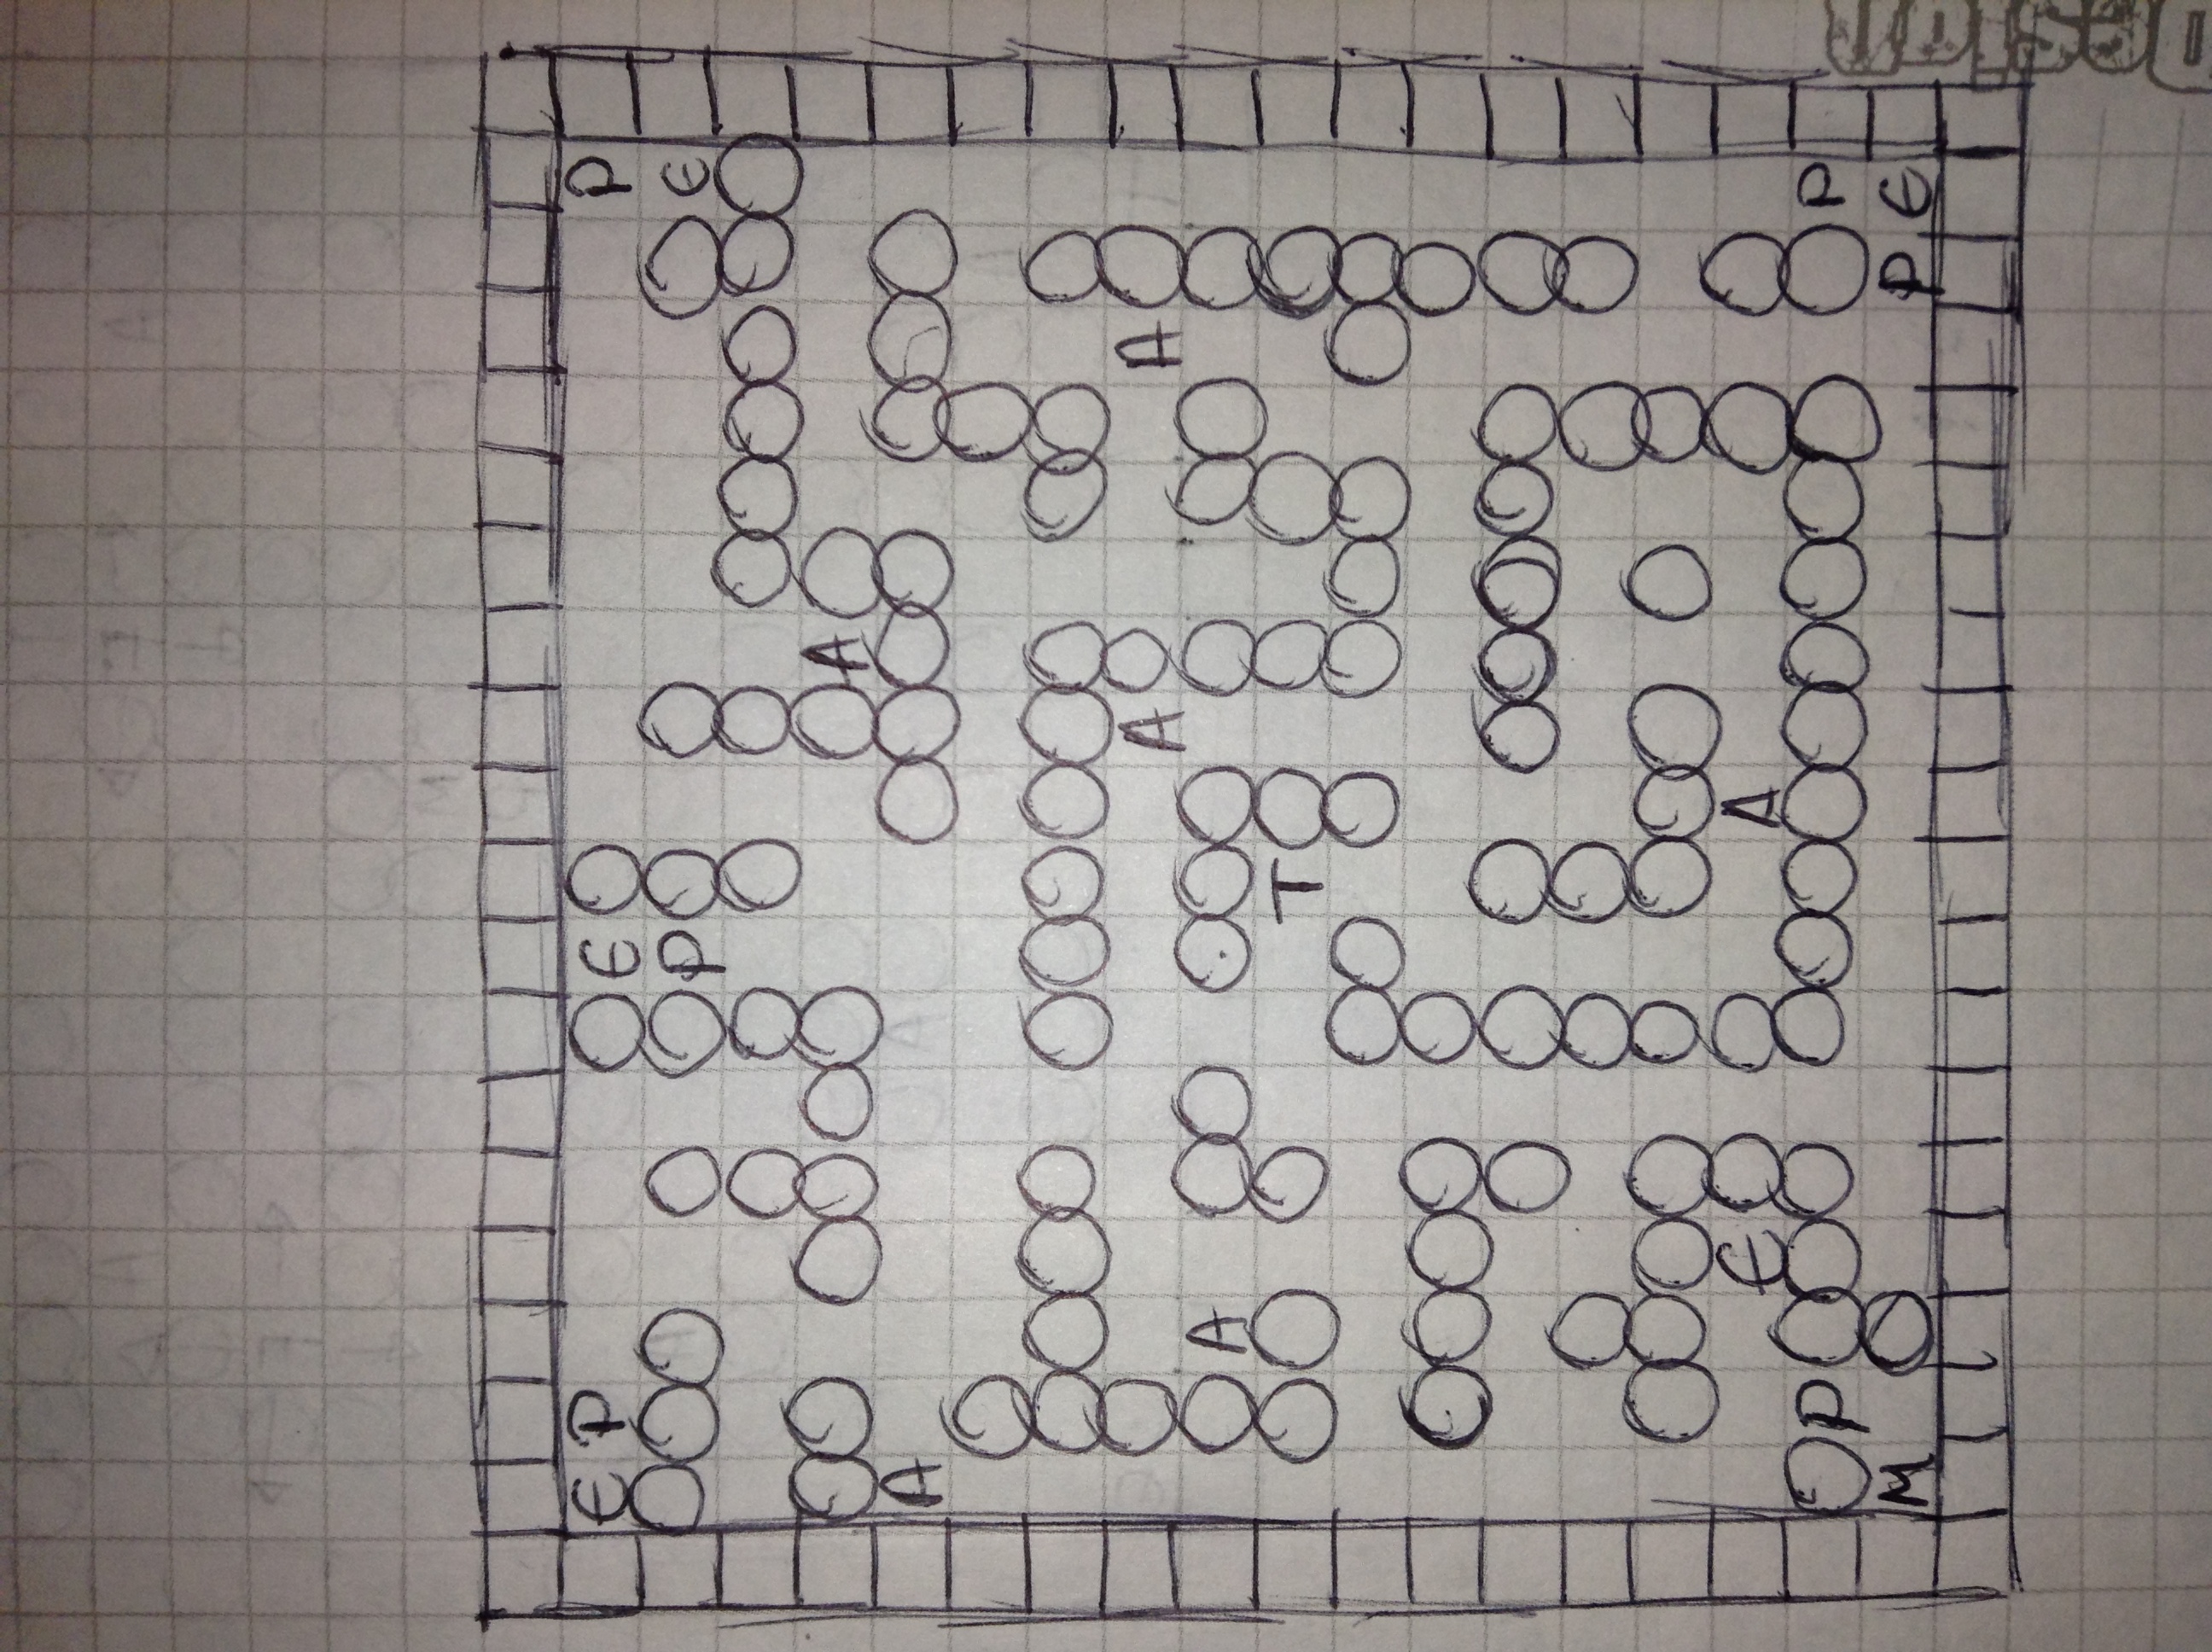 E P E P
P E
A
A
A A
A
T
E A
P P
M P E